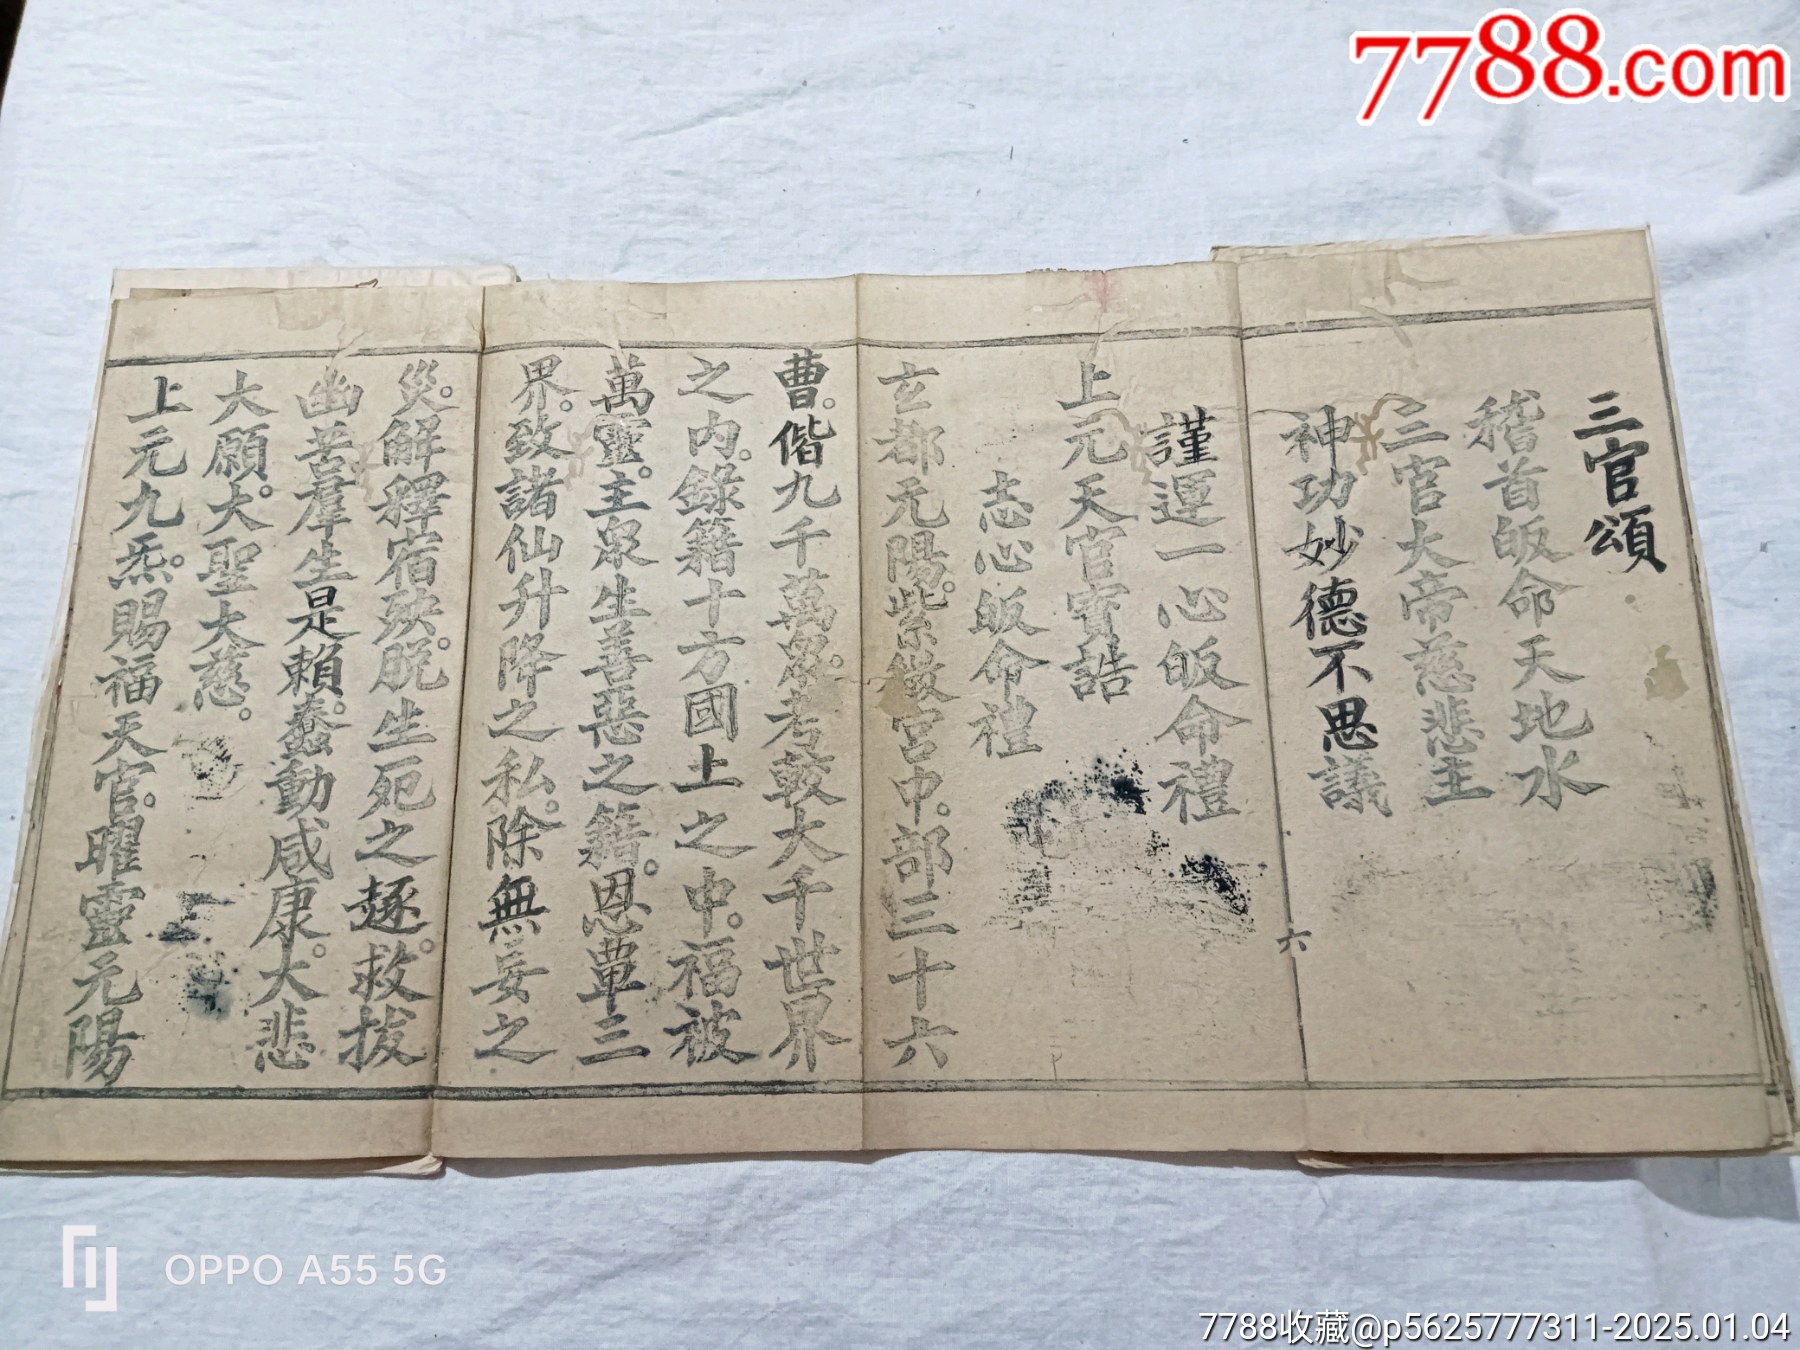 7788.com
三官頌
稽首皈命天地水
三官大帝慈悲主
神功妙德不思議
六
謹運一心皈命禮
上元天官寶誥
志心皈命禮
玄都元陽。紫微宮中。部三十六
曹。偕九千萬眾。考較大千世界
之内。錄籍十方國土之中。福被
萬靈。主眾生善惡之籍。恩覃三
界。致諸仙升降之私。除無妄之
災。解釋宿殃。脱生死之趣。救拔
幽苦。羣生是賴。蠢動咸康。大悲
大願。大聖大慈。
上元九炁。賜福天官。曜靈元陽
OPPO A55 5G
7788收藏@p5625777311-2025.01.04